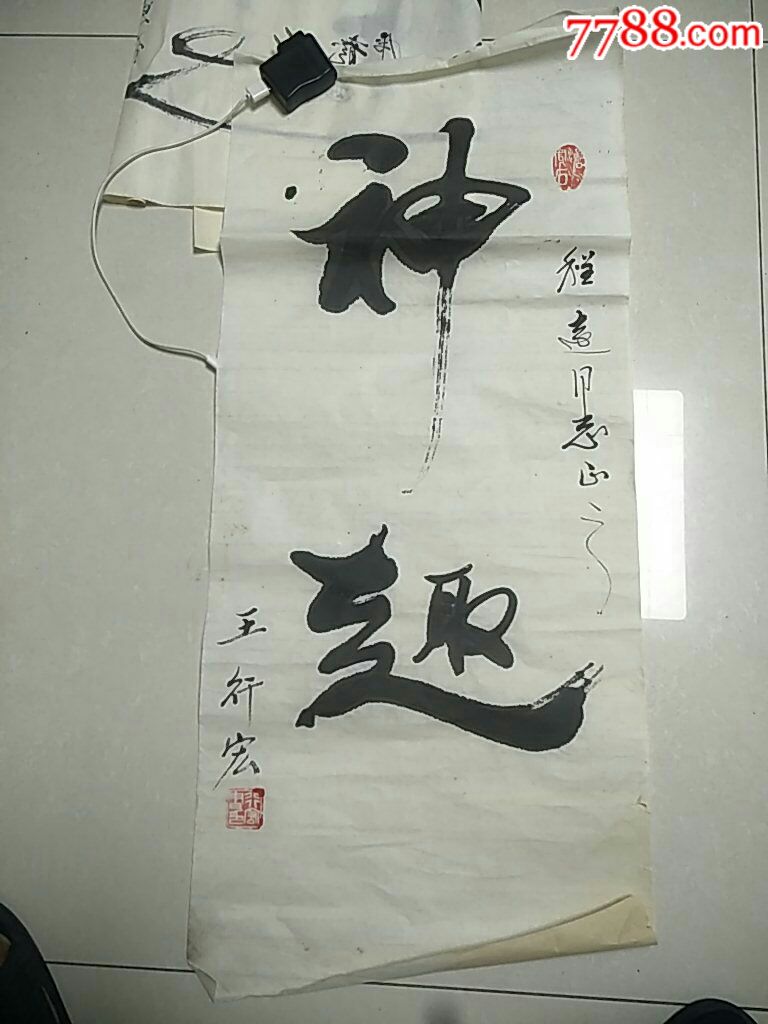 7788.com
神趣
程远同志正之
王行宏